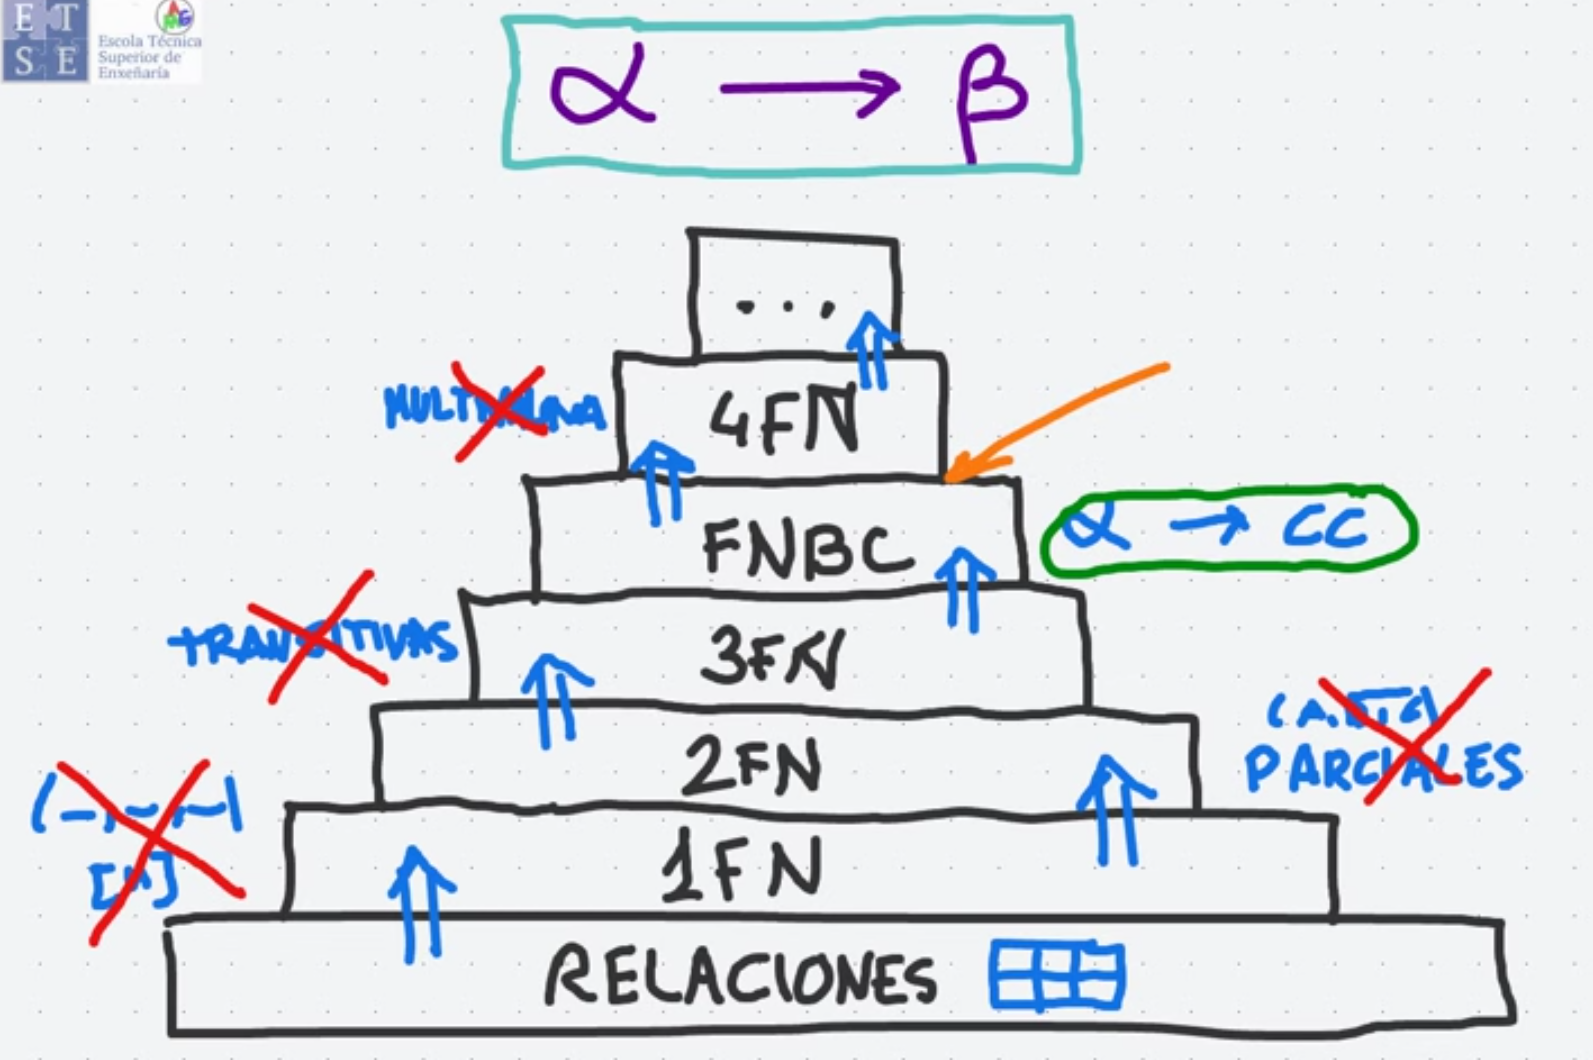 E T
S E
Escola Técnica
Superior de
Enxeñaría
α → β
...
4FN
FNBC
α → CC
TRANSITIVAS
3FN
2FN
PARCIALES
(-,-,-)
[n]
1FN
RELACIONES